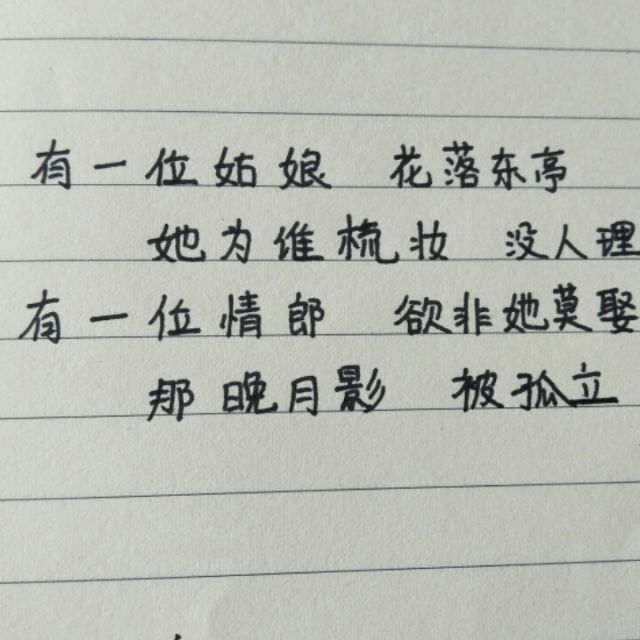 有一位姑娘 花落东亭
她为谁梳妆 没人理
有一位情郎 欲非她莫娶
那晚月影 被孤立